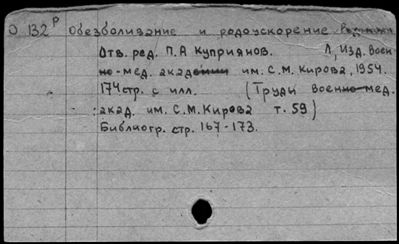 О 132 р Обезболивание и родоускорение
Отв. ред. П.А Куприянов. Л, Изд. Воен
но-мед. академии им. С.М. Кирова, 1954.
174 стр. с илл. (Труды военно-мед.
акад. им. С.М. Кирова т. 59)
Библиогр. стр. 167-173.